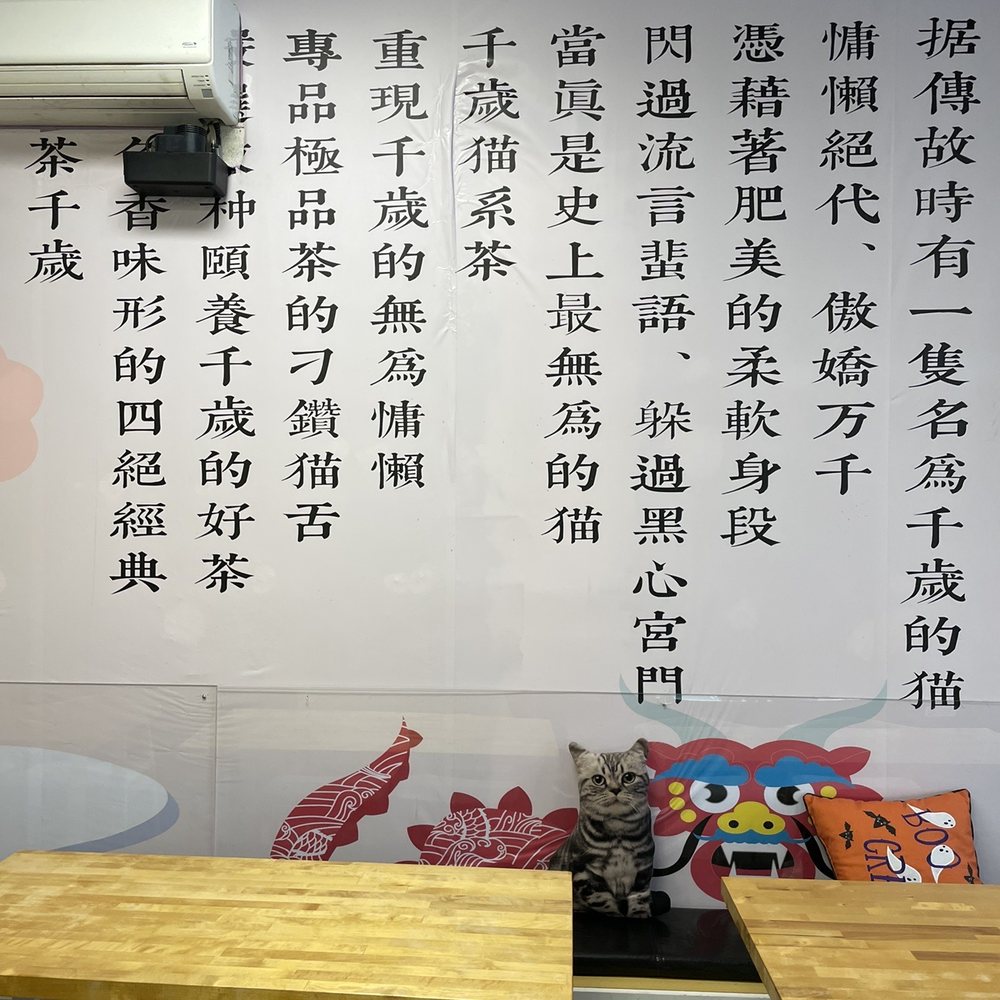 据傳故時有一隻名為千歲的猫
慵懶絕代、傲嬌万千
憑藉著肥美的柔軟身段
閃過流言蜚語、躲過黑心宮門
當眞是史上最無為的猫
千歲猫系茶
重現千歲的無為慵懶
專品極品茶的刁鑽猫舌
種頤養千歲的好茶
香味形的四絕經典
茶千歲
BOO